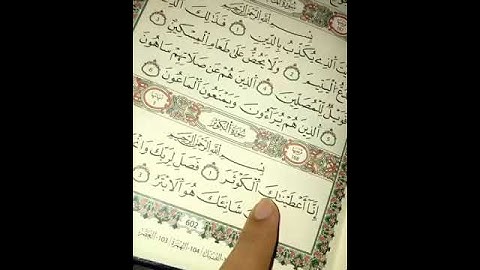 بِسْمِ اللَّهِ الرَّحْمَٰنِ الرَّحِيمِ
الَّذِي يُكَذِّبُ بِالدِّينِ ١ فَذَٰلِكَ
الْيَتِيمَ ٢ وَلَا يَحُضُّ عَلَىٰ طَعَامِ الْمِسْكِينِ ٣
فَوَيْلٌ لِّلْمُصَلِّينَ ٤ الَّذِينَ هُمْ عَن صَلَاتِهِمْ سَاهُونَ ٥
الَّذِينَ هُمْ يُرَاءُونَ ٦ وَيَمْنَعُونَ الْمَاعُونَ ٧
سُورَةُ الْكَوْثَرِ
بِسْمِ اللَّهِ الرَّحْمَٰنِ الرَّحِيمِ
إِنَّا أَعْطَيْنَاكَ الْكَوْثَرَ ١ فَصَلِّ لِرَبِّكَ
شَانِئَكَ هُوَ الْأَبْتَرُ ٣
602
104-الهمزة 103-العصر